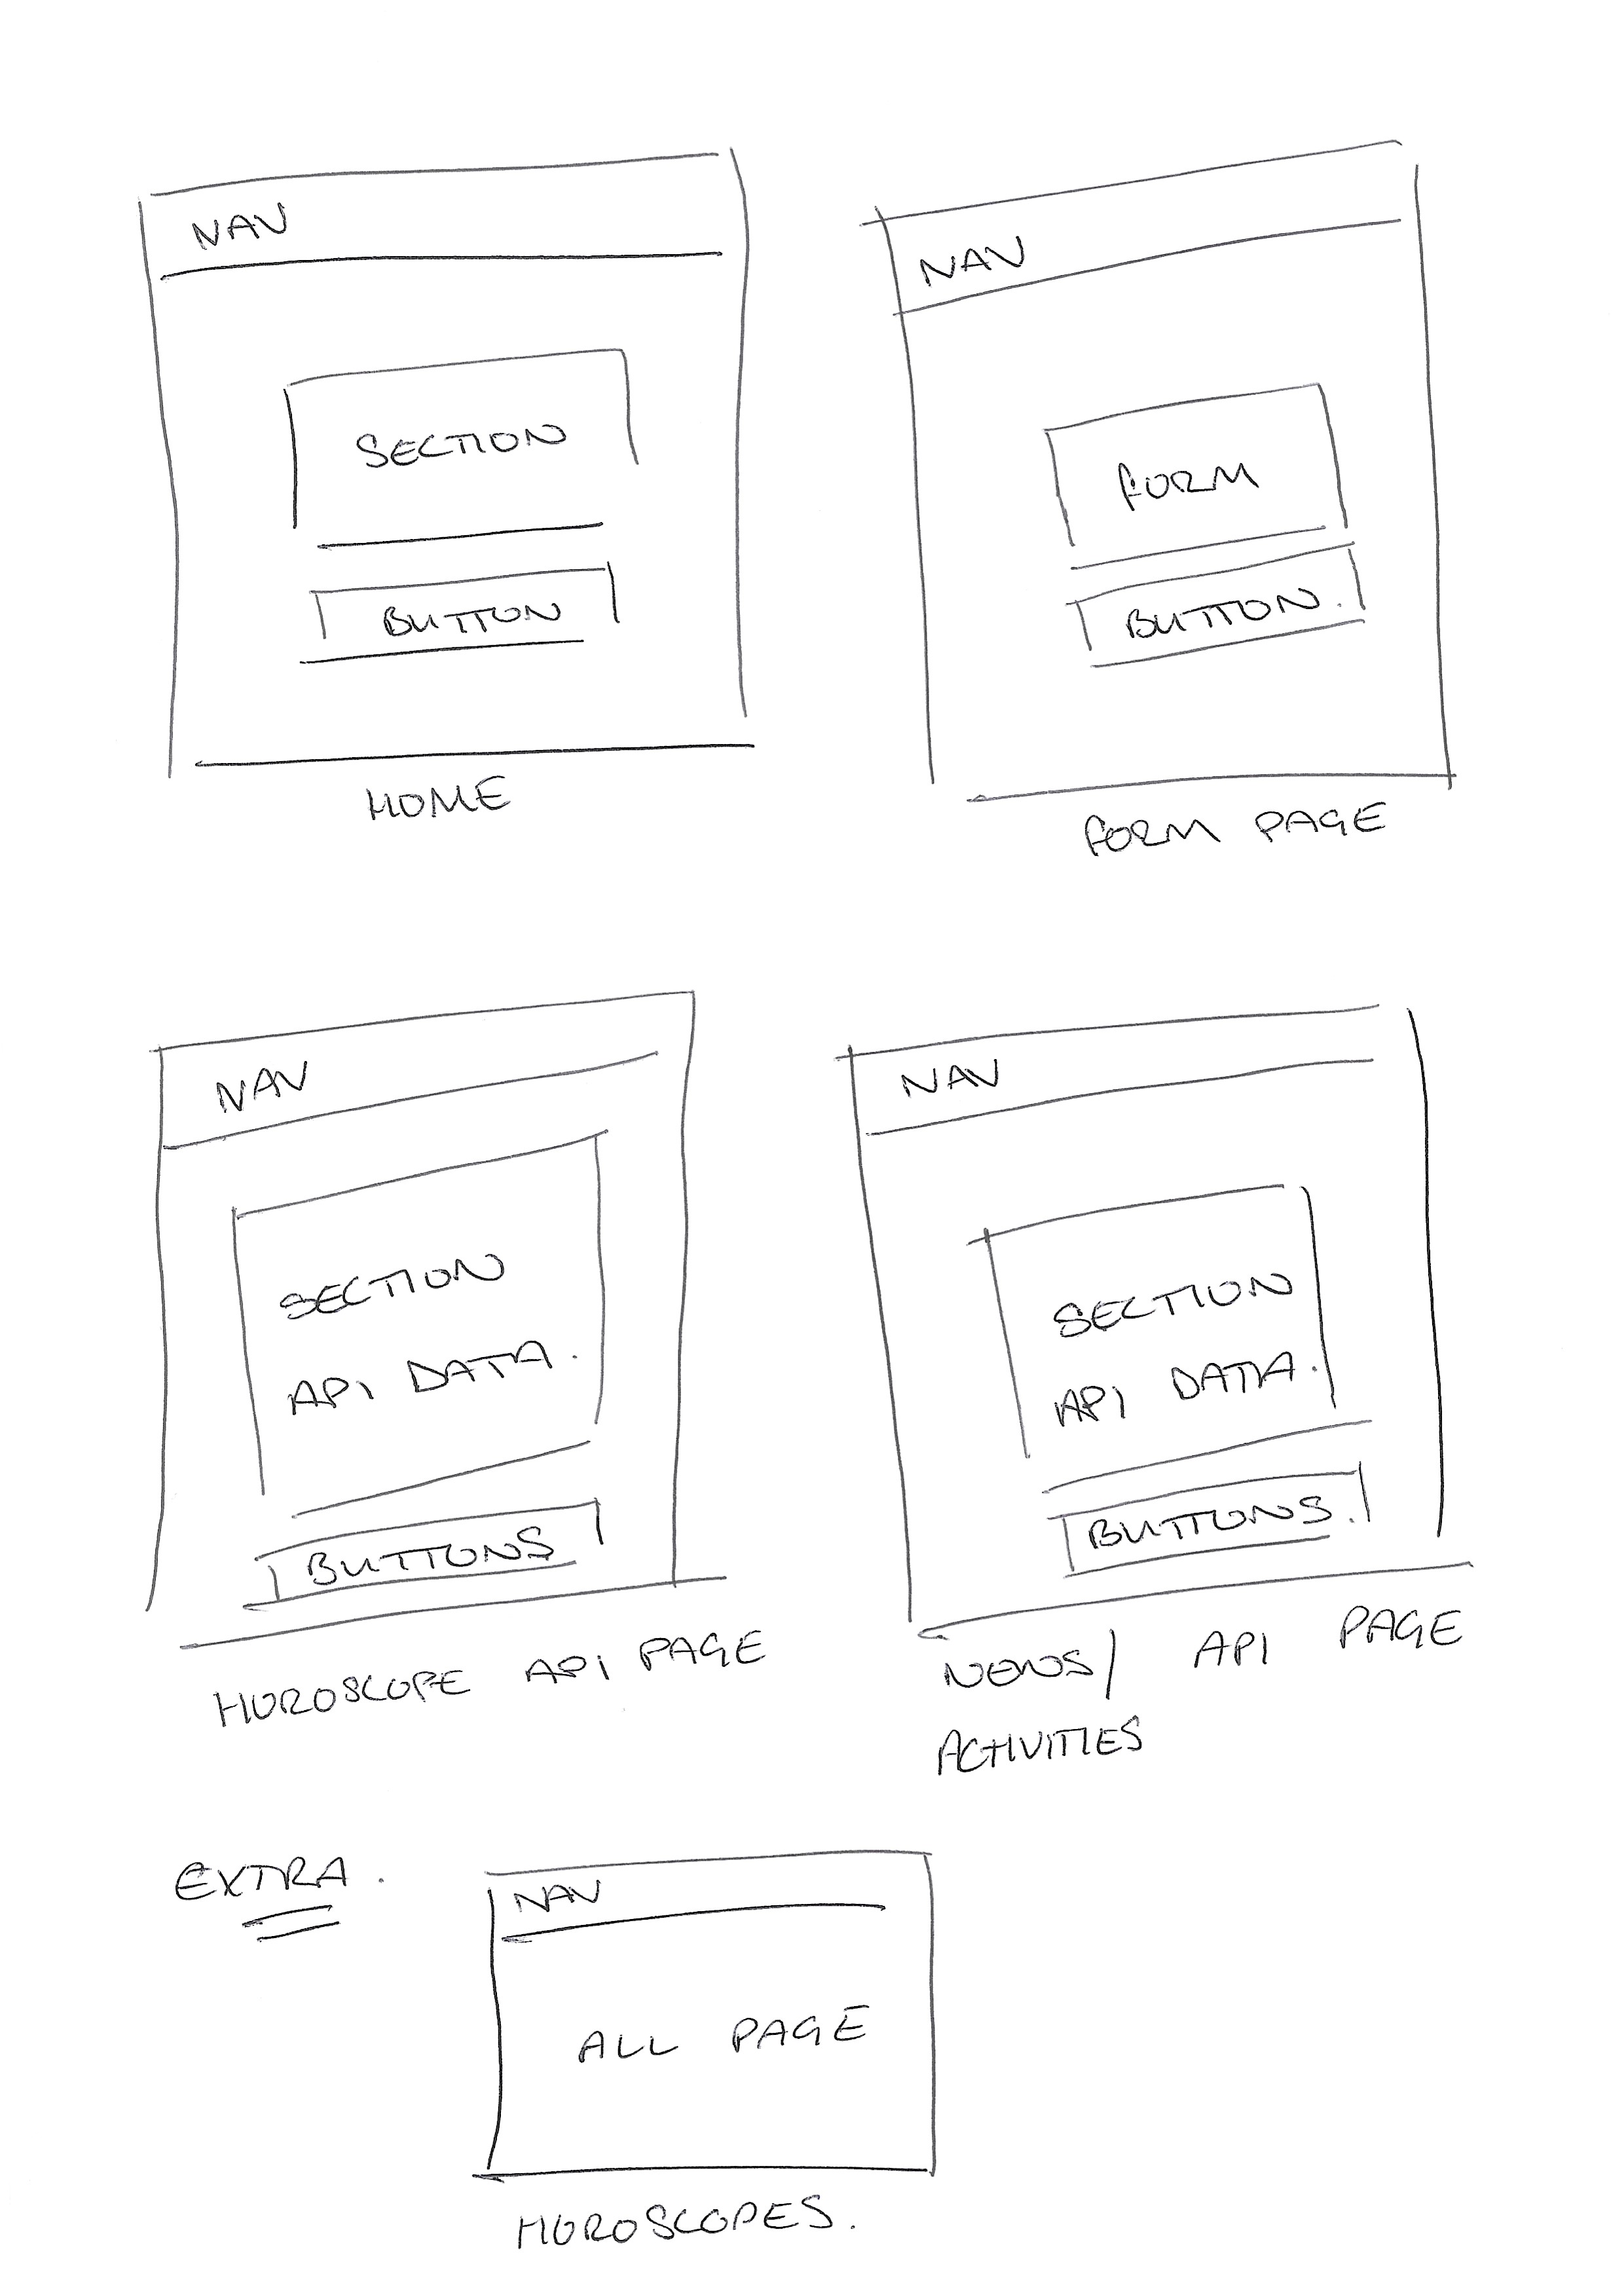 NAV
SECTION
BUTTON
HOME
NAV
FORM
BUTTON.
FORM PAGE
NAV
SECTION
API DATA.
BUTTONS
HOROSCOPE API PAGE
NAV
SECTION
API DATA.
BUTTONS.
NEWS/ API PAGE
ACTIVITIES
EXTRA.
NAV
ALL PAGE
HOROSCOPES.